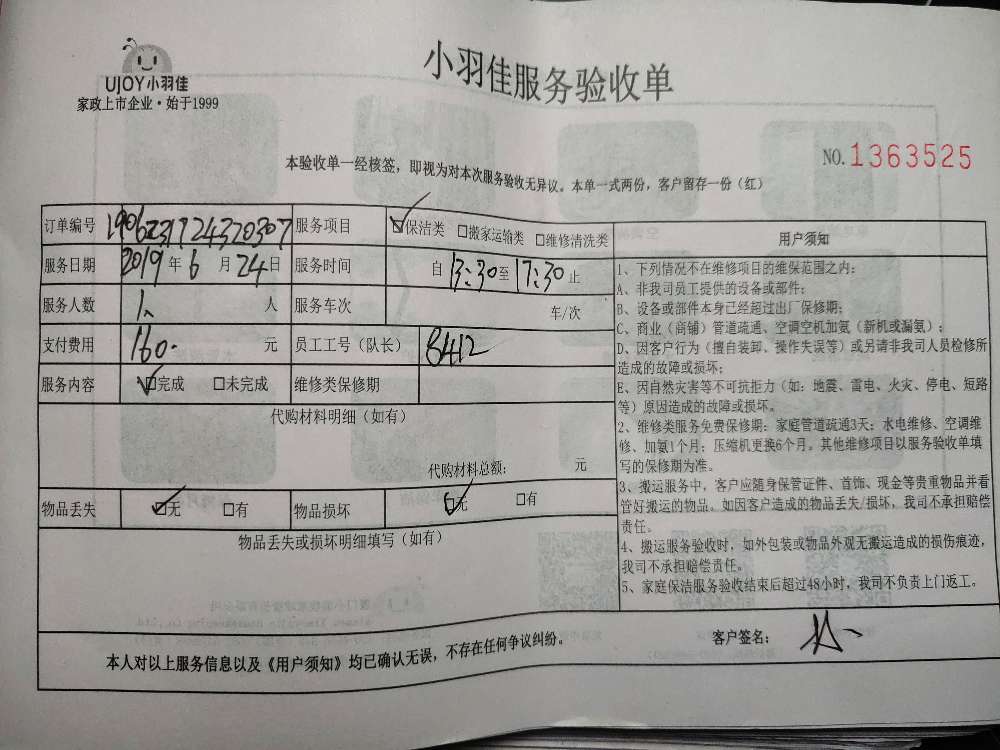 UJOY小羽佳
家政上市企业·始于1999
小羽佳服务验收单
NO.1363525
本验收单一经核签，即视为对本次服务验收无异议。本单一式两份，客户留存一份（红）
订单编号 1906231724320307 服务项目 ☑保洁类 □搬家运输类 □维修清洗类
服务日期 2019年6月24日 服务时间 自13:30至17:30止
服务人数 1 人 服务车次 车/次
支付费用 160 元 员工工号（队长） 6412
服务内容 ☑完成 □未完成 维修类保修期
代购材料明细（如有）
代购材料总额： 元
物品丢失 ☑无 □有 物品损坏 ☑无 □有
物品丢失或损坏明细填写（如有）
用户须知
1、下列情况不在维修项目的维保范围之内：
A、非我司员工提供的设备或部件；
B、设备或部件本身已经超过出厂保修期；
C、商业（商铺）管道疏通、空调空机加氨（新机或漏氨）；
D、因客户行为（擅自装卸、操作失误等）或另请非我司人员检修所
造成的故障或损坏；
E、因自然灾害等不可抗拒力（如：地震、雷电、火灾、停电、短路
等）原因造成的故障或损坏。
2、维修类服务免费保修期：家庭管道疏通3天；水电维修、空调维
修、加氨1个月；压缩机更换6个月。其他维修项目以服务验收单填
写的保修期为准。
3、搬运服务中，客户应随身保管证件、首饰、现金等贵重物品并看
管好搬运的物品。如因客户造成的物品丢失/损坏，我司不承担赔偿
责任。
4、搬运服务验收时，如外包装或物品外观无搬运造成的损伤痕迹，
我司不承担赔偿责任。
5、家庭保洁服务验收结束后超过48小时，我司不负责上门返工。
本人对以上服务信息以及《用户须知》均已确认无误，不存在任何争议纠纷。
客户签名：